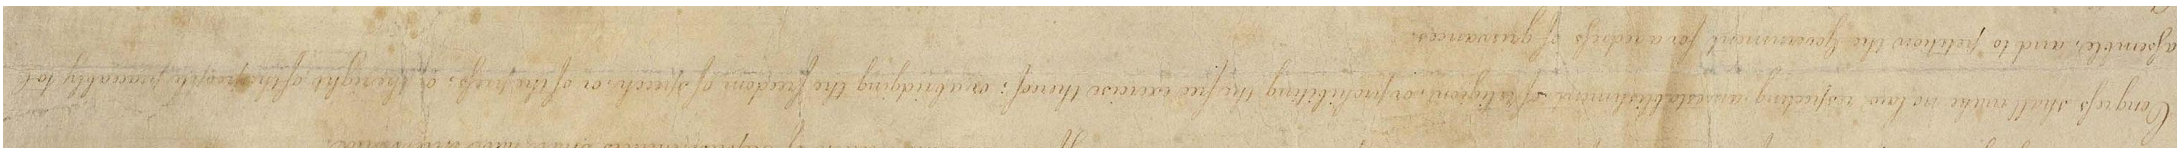 of Representatives shall have intervened.
Congress shall make no law respecting an establishment of religion, or prohibiting the free exercise thereof; or abridging the freedom of speech, or of the press; or the right of the people peaceably to
assemble, and to petition the Government for a redress of grievances.